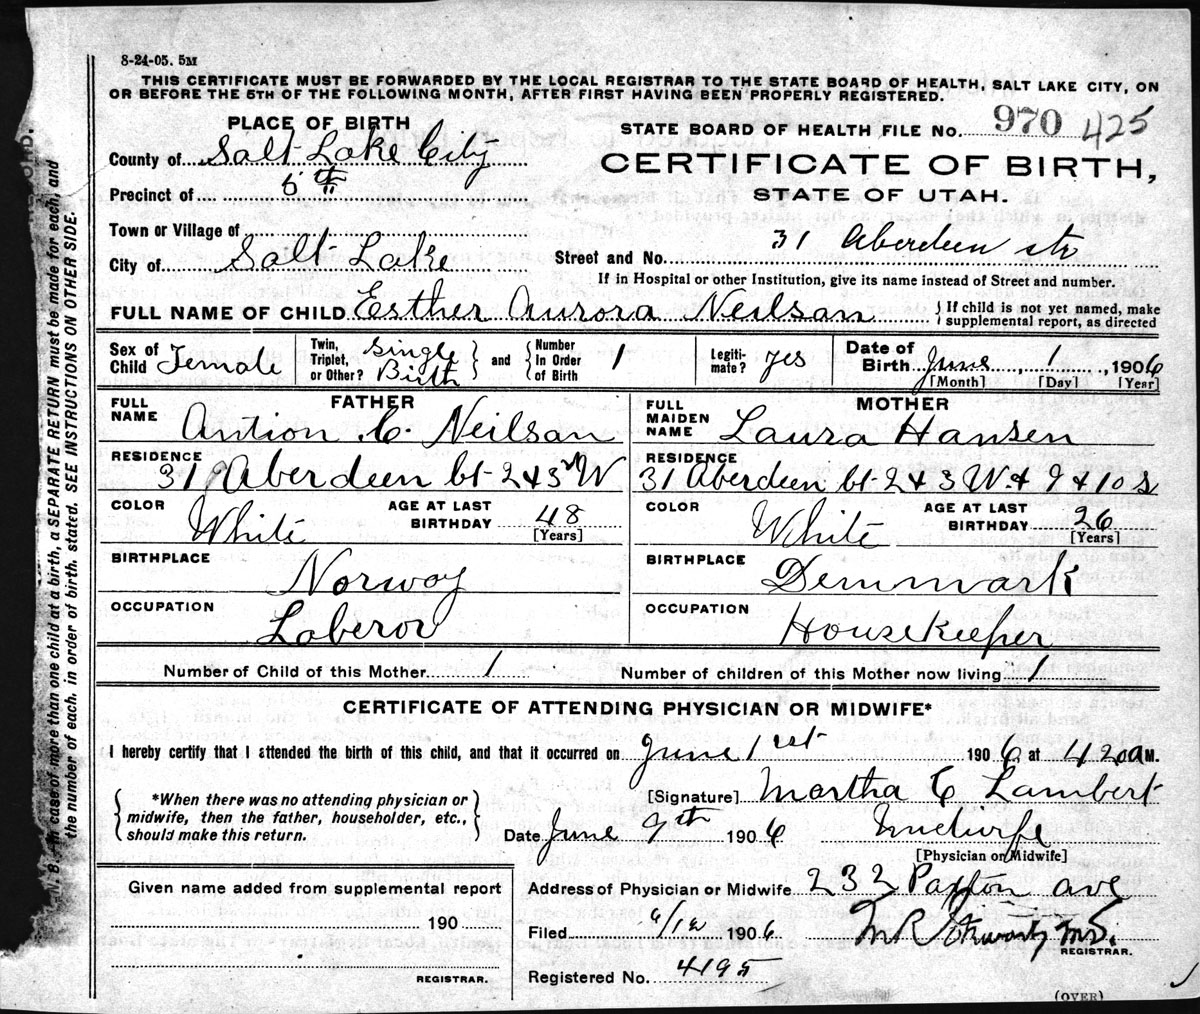 8-24-05. 5M
THIS CERTIFICATE MUST BE FORWARDED BY THE LOCAL REGISTRAR TO THE STATE BOARD OF HEALTH, SALT LAKE CITY, ON
OR BEFORE THE 5TH OF THE FOLLOWING MONTH, AFTER FIRST HAVING BEEN PROPERLY REGISTERED.
PLACE OF BIRTH
County of Salt Lake City
Precinct of 5th
Town or Village of
City of Salt Lake
STATE BOARD OF HEALTH FILE No. 970 425
CERTIFICATE OF BIRTH,
STATE OF UTAH.
Street and No. 31 Aberdeen str
If in Hospital or other Institution, give its name instead of Street and number.
FULL NAME OF CHILD Esther Aurora Neilson { If child is not yet named, make
supplemental report, as directed
Sex of Child Female
Twin, Triplet, or Other? Single Birth } and { Number In Order of Birth 1
Legitimate? yes
Date of Birth June 1, 1906
[Month] [Day] [Year]
FATHER
FULL NAME Antion C. Neilson
RESIDENCE 31 Aberdeen bt 2 & 3rd W
COLOR White AGE AT LAST BIRTHDAY 48 [Years]
BIRTHPLACE Norway
OCCUPATION Laberor
MOTHER
FULL MAIDEN NAME Laura Hansen
RESIDENCE 31 Aberdeen bt 2 & 3 W & 9 & 10 s
COLOR White AGE AT LAST BIRTHDAY 26 [Years]
BIRTHPLACE Demmark
OCCUPATION Housekeeper
Number of Child of this Mother 1 Number of children of this Mother now living 1
CERTIFICATE OF ATTENDING PHYSICIAN OR MIDWIFE*
I hereby certify that I attended the birth of this child, and that it occurred on June 1st 1906 at 4 20 a M.
*When there was no attending physician or
midwife, then the father, householder, etc.,
should make this return.
[Signature] Martha C Lambert
Date June 9th 1906
[Physician or Midwife]
Given name added from supplemental report
190
REGISTRAR.
Address of Physician or Midwife 232 Paxton ave
Filed 6/12 1906 M.D.
REGISTRAR.
Registered No. 4195
(OVER)
In case of more than one child at a birth, a SEPARATE RETURN must be made for each, and
the number of each, in order of birth, stated. SEE INSTRUCTIONS ON OTHER SIDE.